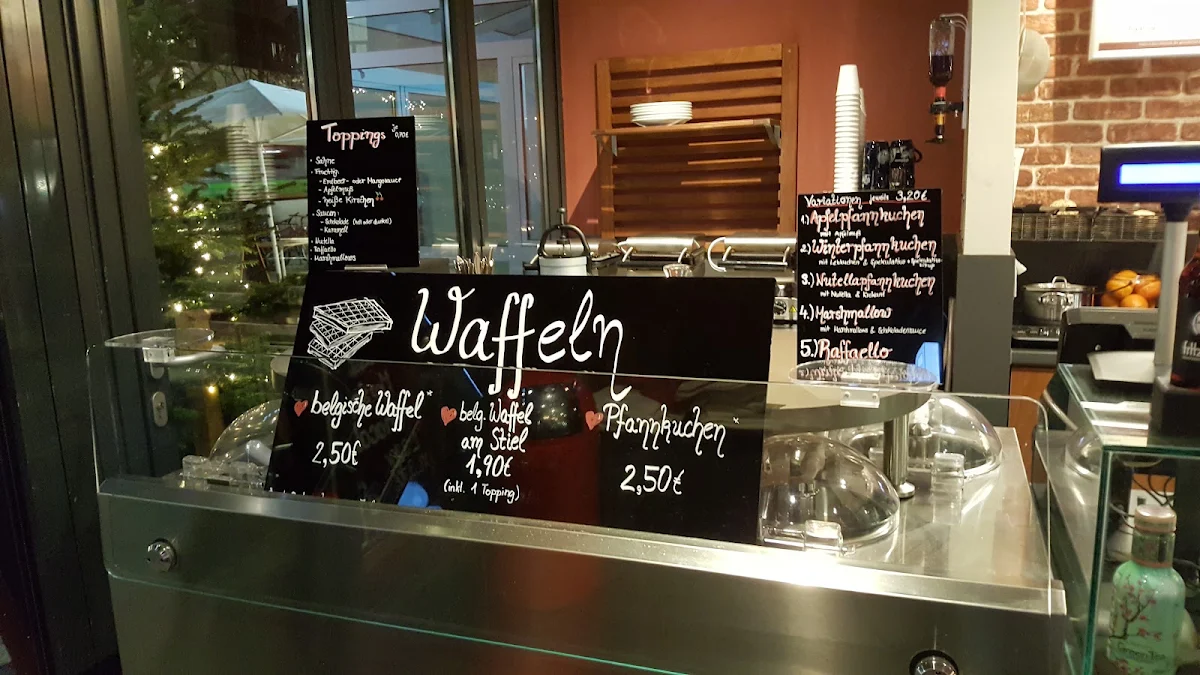 Toppings je 0,70€
- Sahne
- Fruchtig:
- Erdbeer- oder Mangosauce
- Apfelmuß
- heiße Kirschen
- Saucen:
- Schokolade (hell oder dunkel)
- Karamell
- Nutella
- Raffaello
- Marshmallows
Waffeln
belgische Waffel*
2,50€
belg. Waffel
am Stiel
1,90€
(inkl. 1 Topping)
Pfannkuchen*
2,50€
Variationen jeweils 3,20€
1.) Apfelpfannkuchen
mit Apfelmuß
2.) Winterpfannkuchen
mit Lebkuchen & Spekulatius
3.) Nutellapfannkuchen
mit Nutella &
4.) Marshmallow
mit Marshmallows & Schokoladensauce
5.) Raffaello
Green Tea